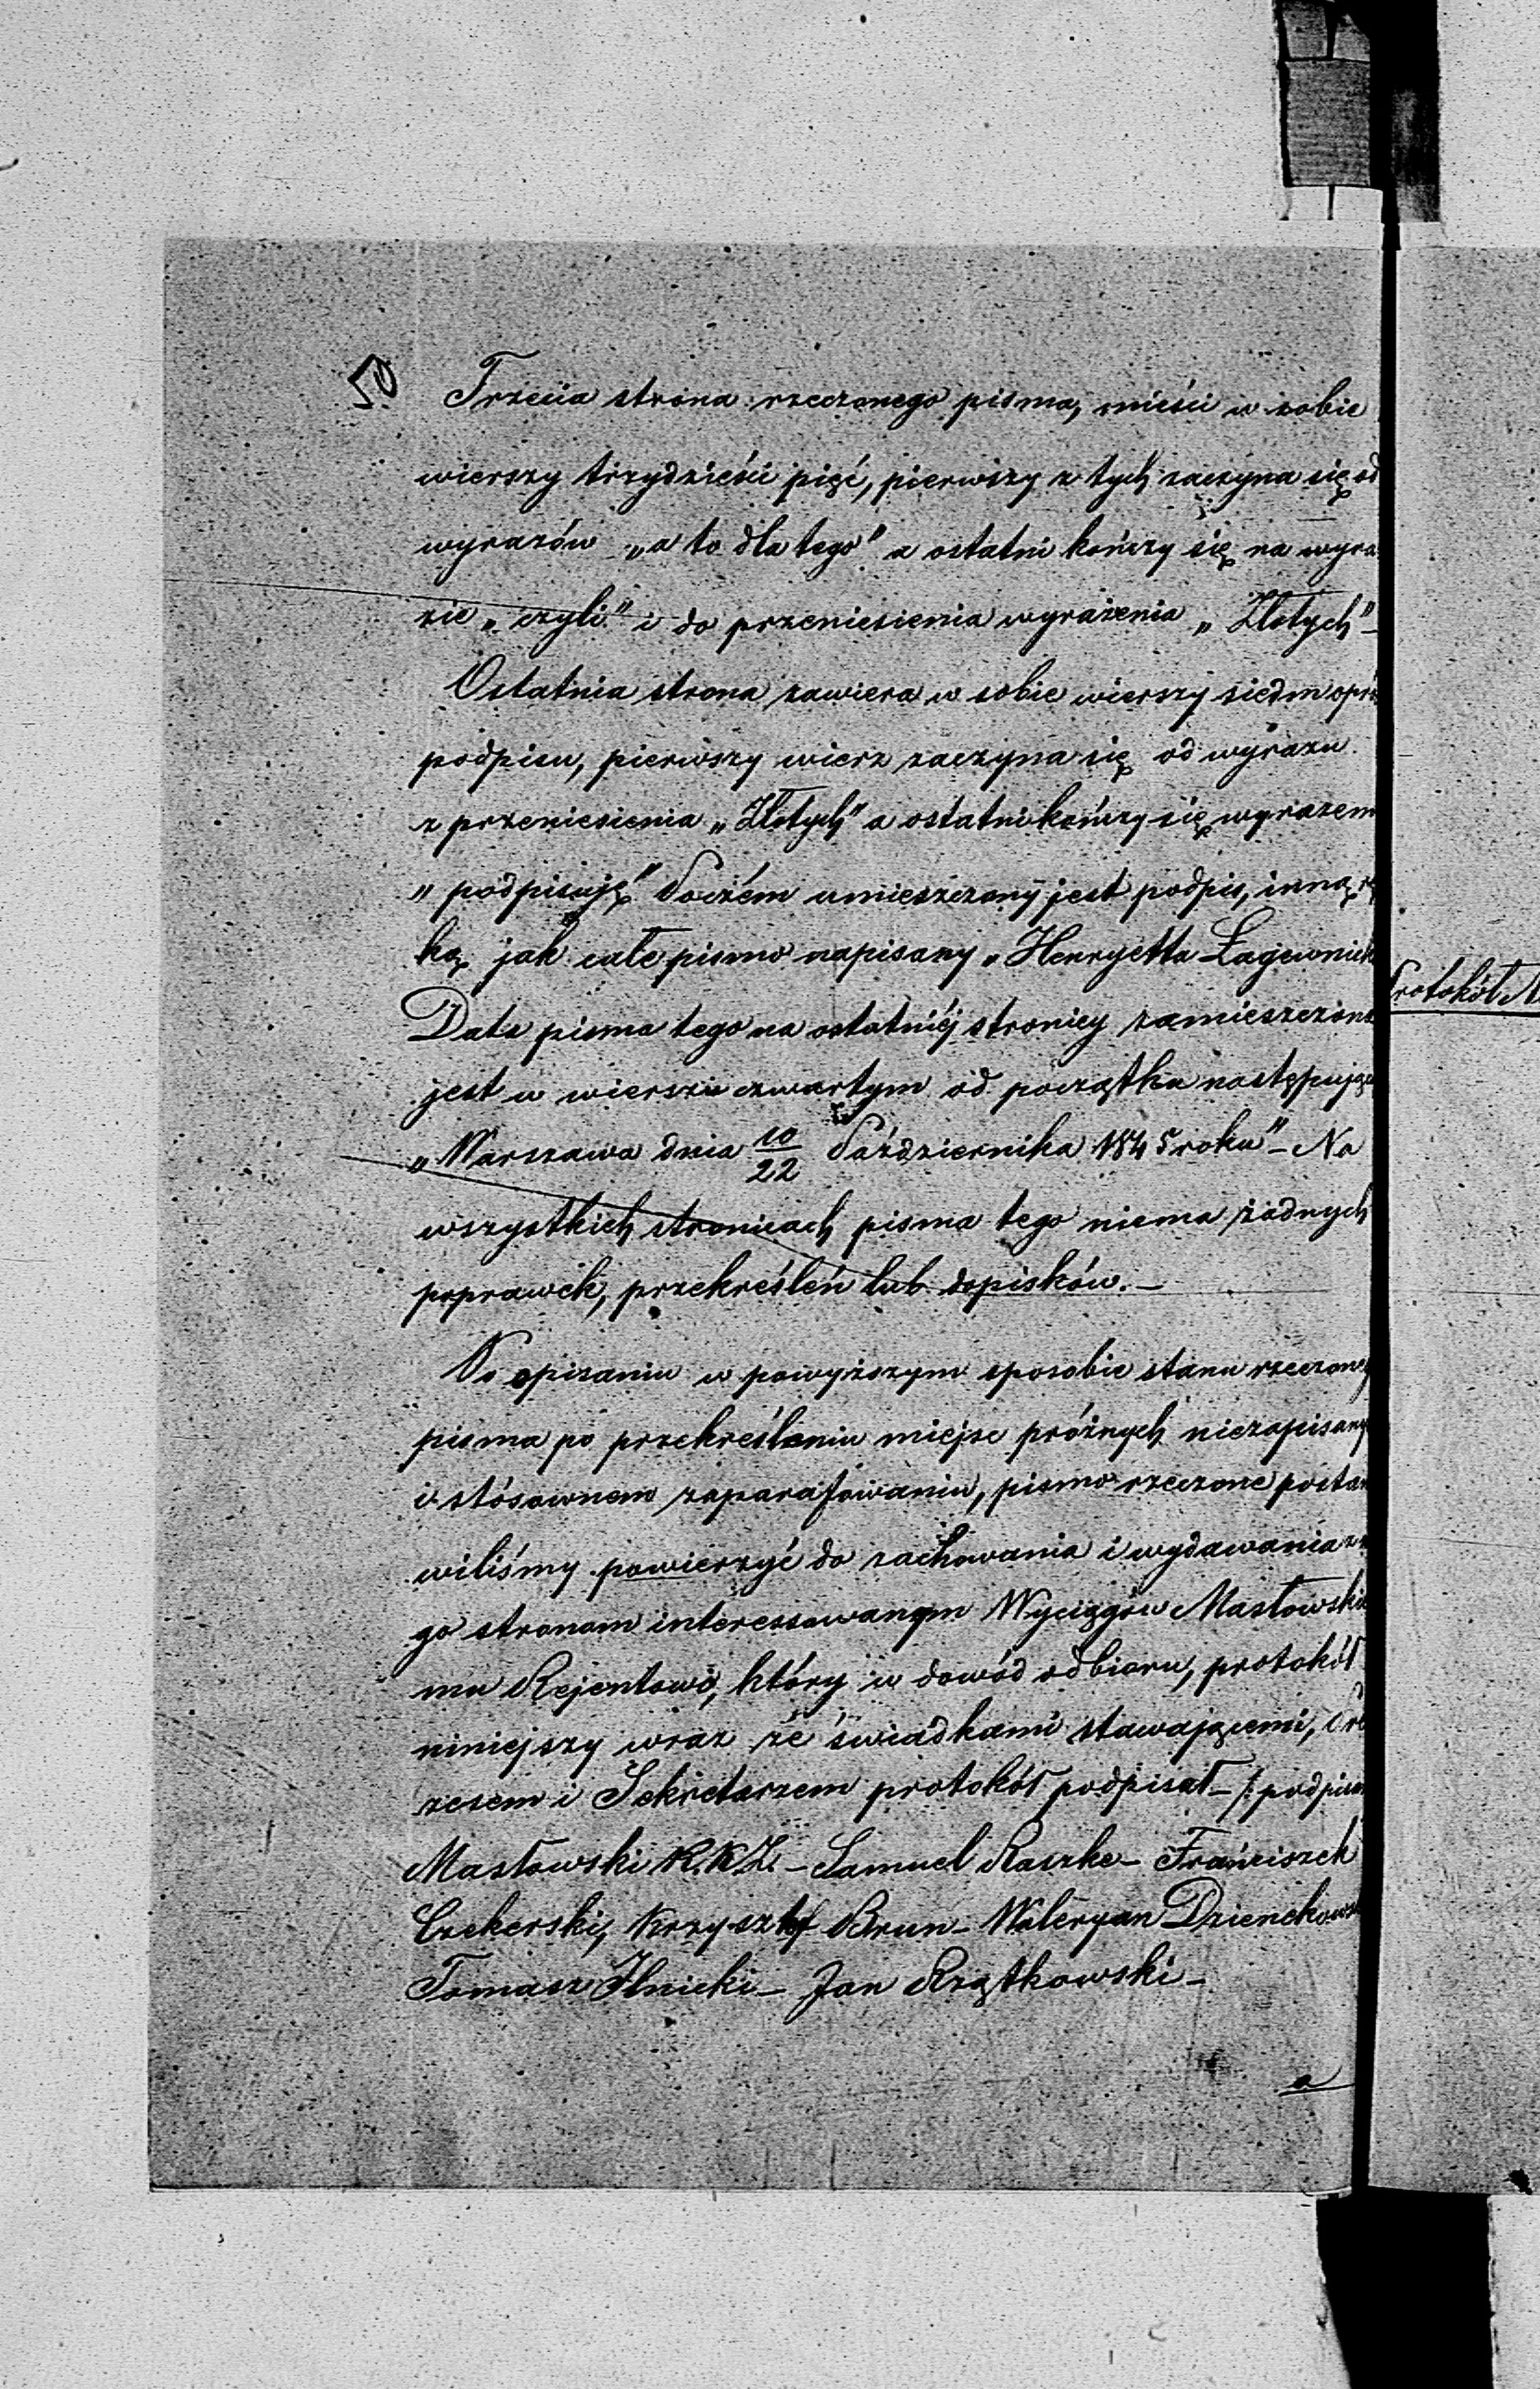 50
Trzecia strona rzeczonego pisma, mieści w sobie
wierszy trzydzieści pięć, pierwszy z tych zaczyna się od
wyrazów „a to dla tego" a ostatni kończy się na wyra
zie „czyli" i do przeniesienia wyrażenia „Złotych"–
Ostatnia strona zawiera w sobie wierszy siedm opró
podpisu, pierwszy wierz zaczyna się od wyrazu
z przeniesienia „Złotych" a ostatni kończy się wyrazem
„podpisuję" Poczém umieszczony jest podpis, inną rę
ką jak całe pismo napisany „Henryetta Łagiewnick
Data pisma tego na ostatniéj stronicy zamieszczona
jest w wierszu czwartym od początku następując
„Warszawa dnia 10/22 Października 1845 roku"– Na
wszystkich stronicach pisma tego niema żadnych
poprawek, przekreśleń lub dopisków.–
Po opisaniu w powyższym sposobie stanu rzeczone
pisma po przekreśleniu miejsc próżnych niezapisany
i stósownem zaparafowaniu, pismo rzeczone postan
wiliśmy powierzyć do zachowania i wydawania z n
go stronom interessowanym Wyciągów Masłowskie
mu Rejentowi, który w dowód odbioru, protokół
niniejszy wraz ze świadkami stawającemi, Pre
zesem i Sekretarzem protokół podpisał– /: podpisan
Masłowski R.K.Z.– Samuel Raszke– Franciszek
Czekerski, Krzysztof Brun– Waleryan Dzienckowsk
Tomasz Ilnicki– Jan Rzątkowski–
a
Protokół N